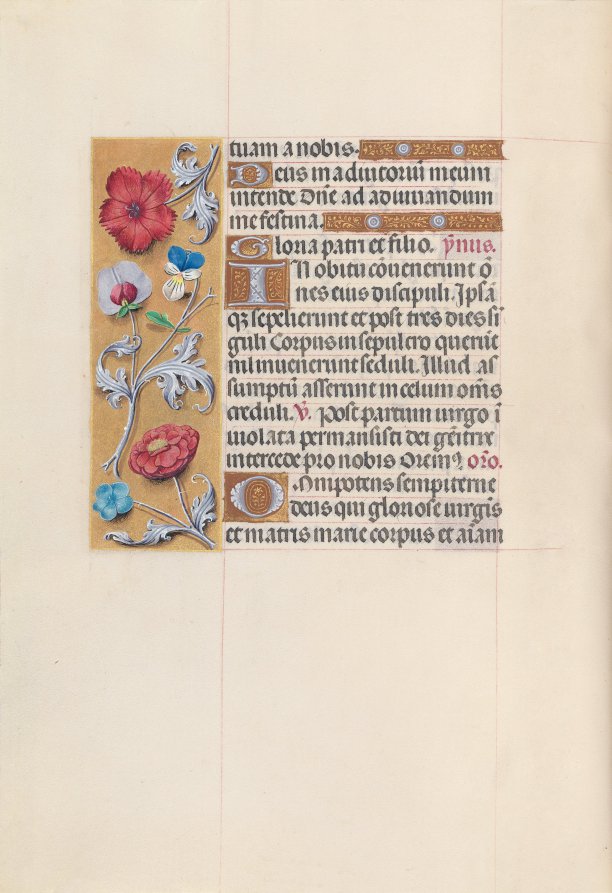 tuam a nobis.
Deus in adiutoriũ meum
intende Dñe ad adiuuandum
me festina.
Gloria patri et filio. ẏmus.
In obitu cõuenerunt õ
nes eius discipuli. Ipsã
qȝ sepelierunt et post tres dies si
guli Corpus in sepulcro querũt
nil inuenerunt seduli. Illud as
sumptũ asserunt in celum om̃s
creduli. V. Post partum uirgo ĩ
uiolata permansisti dei geñtrix
intercede pro nobis Oremꝰ oro.
Omnipotens sempiterne
deus qui gloriose uirgis
et matris marie corpus et aĩam